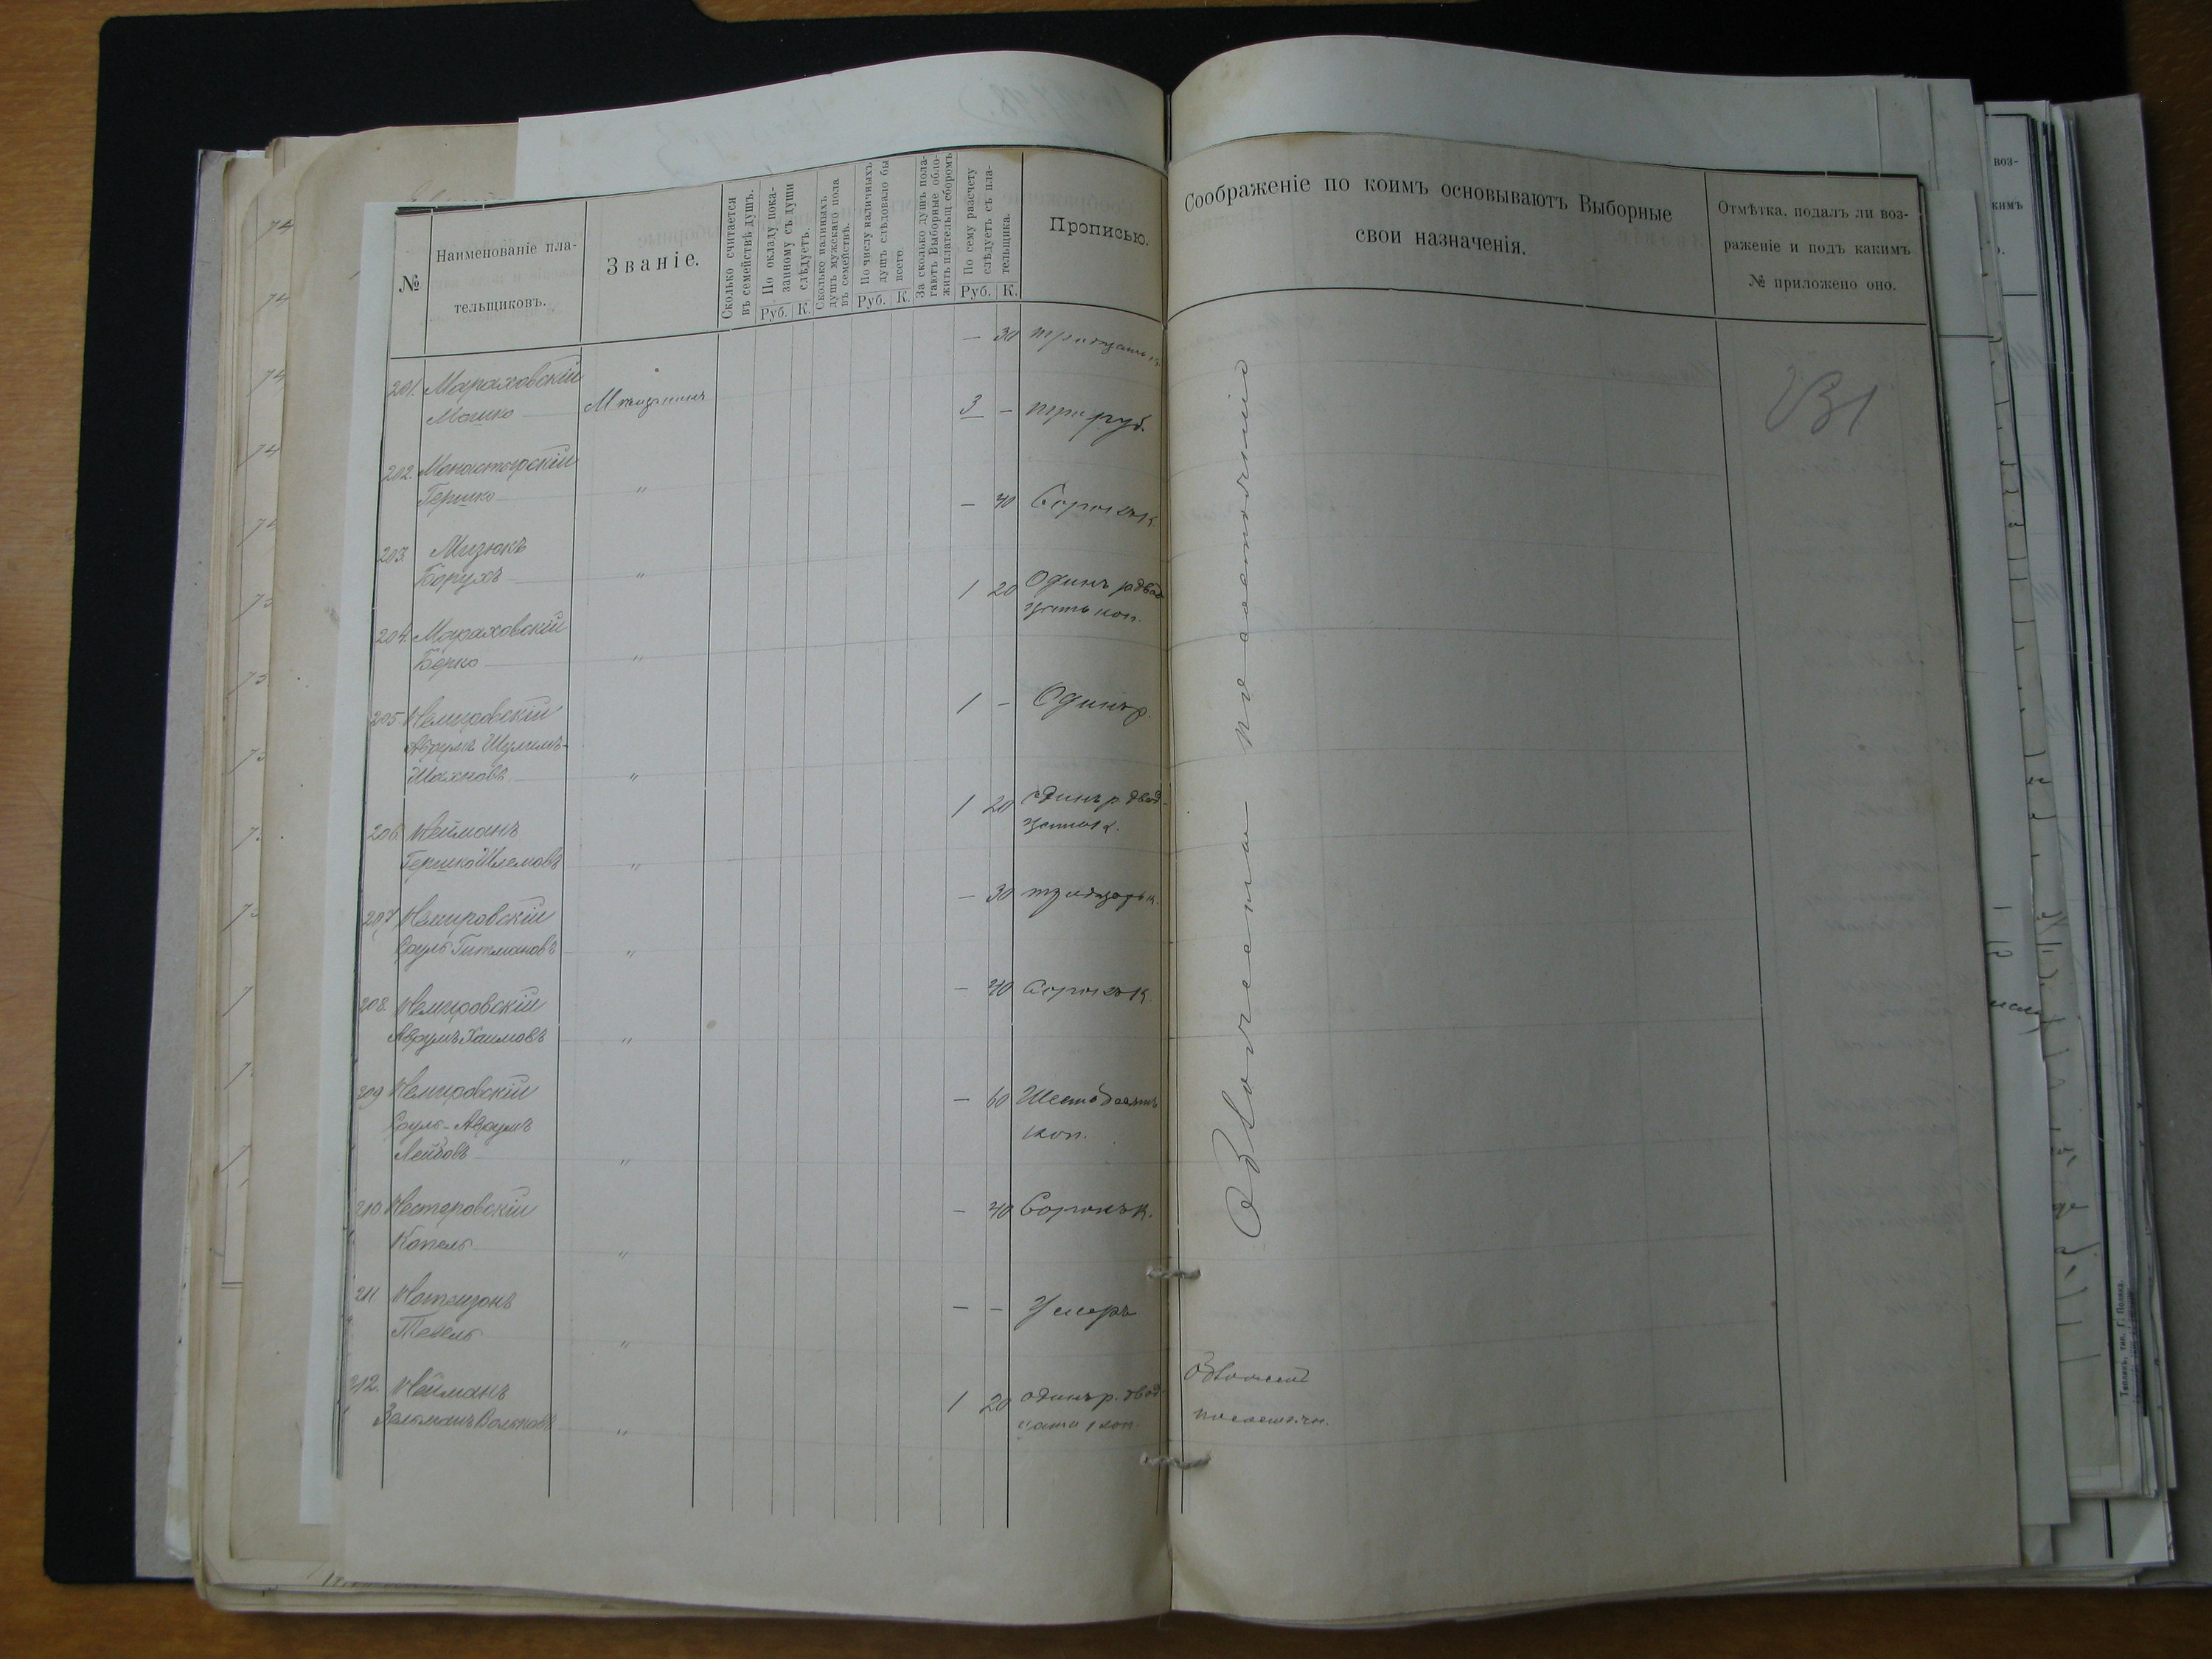 №
Наименованіе пла-
тельщиковъ.
Званіе.
Сколько считается
въ семействѣ душъ.
По окладу пока-
занному съ души
слѣдуетъ.
Руб. К.
Сколько наличныхъ
душъ мужскаго пола
въ семействѣ.
По числу наличныхъ
душъ слѣдовало бы
всего.
Руб. К.
За сколько душъ пола-
гаютъ Выборные обло-
жить плательщ. сборомъ
По сему разсчету
слѣдуетъ съ пла-
тельщика.
Руб. К.
Прописью.
Соображеніе по коимъ основываютъ Выборные
свои назначенія.
Отмѣтка, подалъ ли воз-
раженіе и подъ какимъ
№ приложено оно.
— 30 тридцать к.
201. Мараховскій
Мошко Мѣщанинъ 3 — три руб.
231
202. Монастырскій
Гершко " — 40 Сорокъ к.
203. Мизюкъ
Борухъ " 1 20 Одинъ р. двад
цать коп.
204. Мараховскій
Берко "
1 — Одинъ р.
205. Немировскій
Аврумъ Шулимъ-
Шахновъ "
1 20 Одинъ р. двад-
цать к.
206 Нейманъ
Гершко Шлемовъ "
— 30 тридцать к.
207 Немировскій
Сруль Гитмановъ "
— 40 Сорокъ к.
208. Немировскій
Аврумъ Хаимовъ "
209 Немировскій — 60 Шестьдесятъ
Сруль-Аврумъ коп.
Лейбовъ "
210. Нестеровскій — 40 Сорокъ к.
Копель "
211. Натанзонъ — — Умеръ
Тевель "
212. Нейманъ 1 20 Одинъ р. двад-
Зельманъ Вольковъ " цать коп.